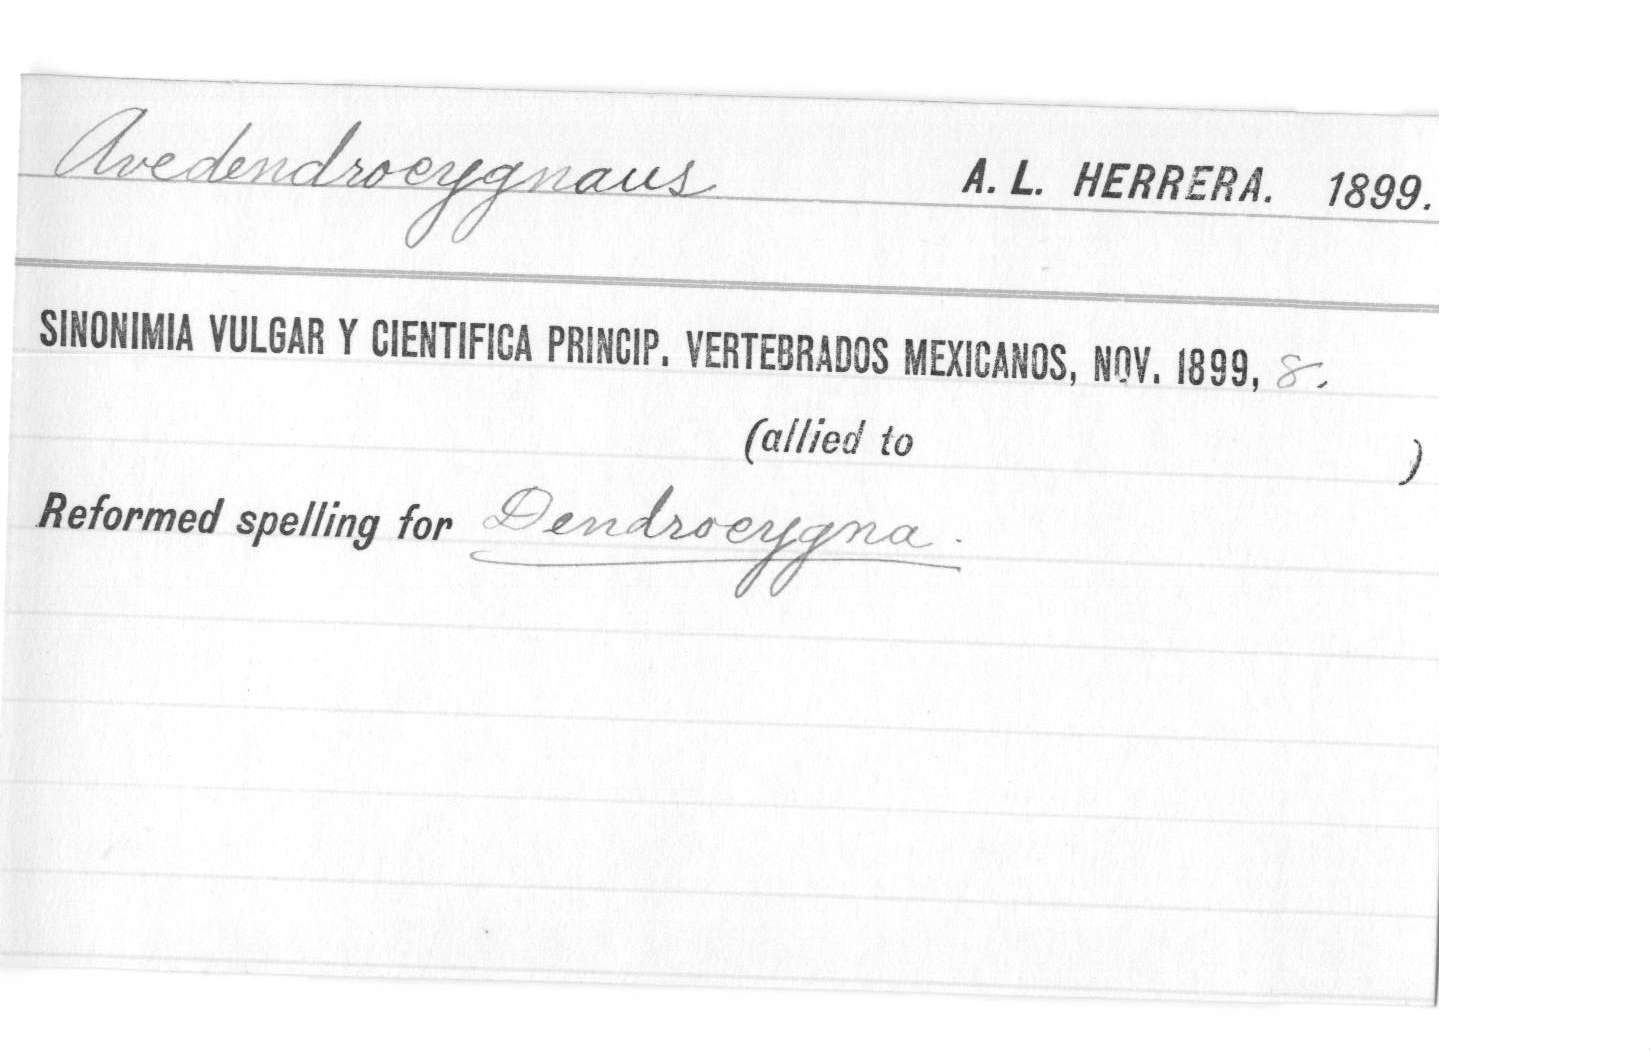 Avedendrocygnaus A. L. HERRERA. 1899.
SINONIMIA VULGAR Y CIENTIFICA PRINCIP. VERTEBRADOS MEXICANOS, NOV. 1899, 8.
(allied to )
Reformed spelling for Dendrocygna.